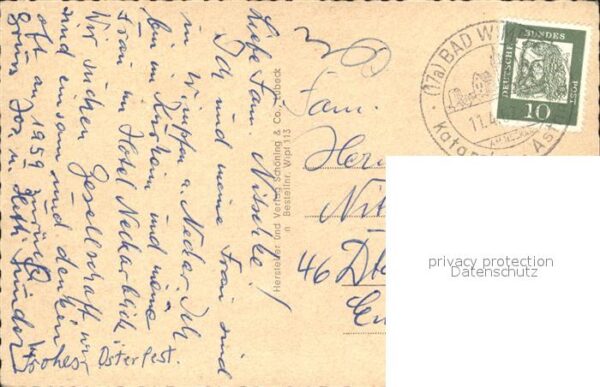 Liebe Fam. Nitschke!
Ich und meine Frau sind
in Wimpfen a. Neckar. Ich
bin im Kurheim und meine
Frau im Hotel Neckarblick
Wir suchen Gesellschaft wir
sind einsam und denken
oft an 1959 zurück
Gruss Jos. u.
Frohes Osterfest.
Hersteller und Verlag Schöning & Co., Lübeck
Bestellnr. Wipf 113
Fam.
46
(17a) BAD WIM
11.4.
DEUTSCHE BUNDESPOST
10
privacy protection
Datenschutz